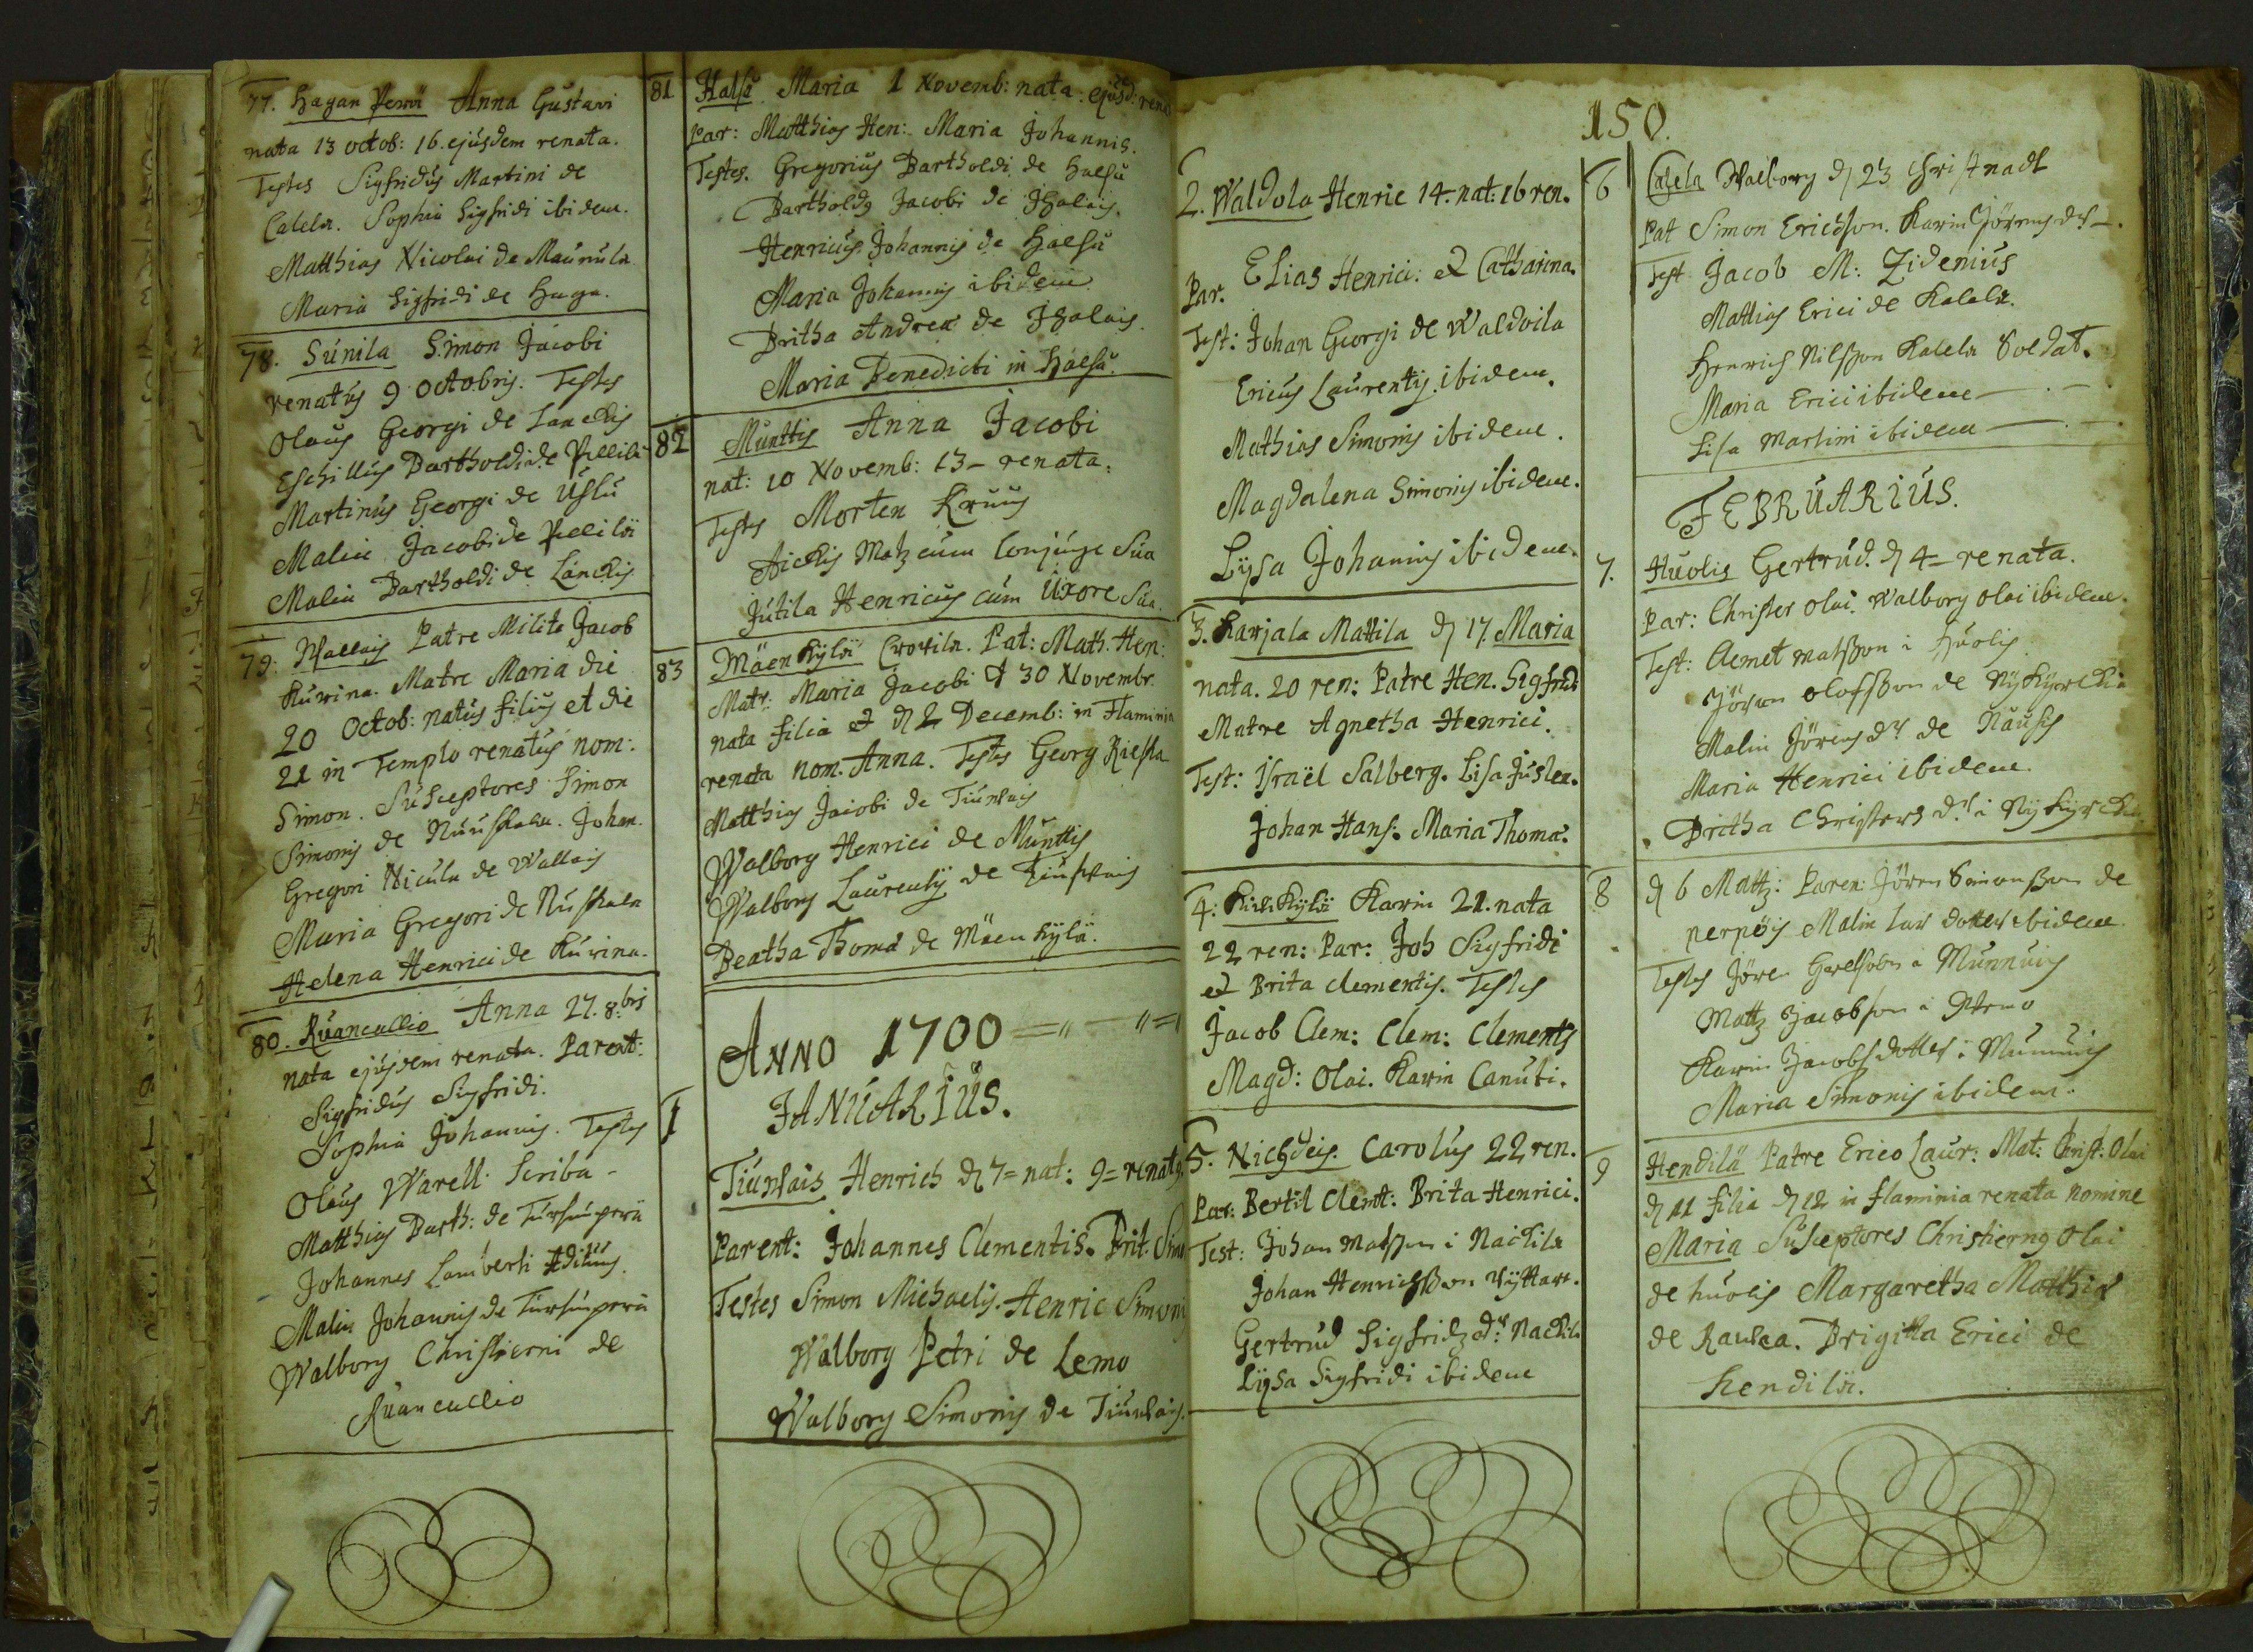 77. Hagan Perā Anna Gustavi
nata 13 octob: 16. ejusdem renata.
Testes Sigfridus Martini de
Calela. Sophia Sigfridi ibidem.
Matthias Nicolai de Maunula
Maria Sigfridi de Haga.
78. Sunila Simon Jacobi
renatus 9 octobris. Testes
Olaus Georgi de Lanckis
Eschillus Bartholdi de Pillilä
Martinus Georgi de Uslu
Malin Jacobi de Pillilä
Malin Bartholdi de Lanckis
79. Wallais Patre Milite Jacob
Kurina. Matre Maria die
20 Octob: natus filius et die
21 in Templo renatus nom:
Simon. Susceptores Simon
Simonis de Nuuskala. Johan.
Gregori Nicula de Wallais
Maria Gregori de Nuskala
Helena Henrici de Kurina.
80. Ruancallio Anna 27. 8bris
nata ejusdem renata. Parent:
Sigfridus Sigfridi.
Sophia Johannis. Testes
Olaus Warell Scriba
Matthias Barth: de Tursunperä
Johannes Lamberti Ædituus.
Malin Johannis de Tursunperä
Walborg Christierni de
Ruancallio
81 Halsu Maria 1 Novemb: nata. ejusd: rena
Par: Matthias Hen: Maria Johannis.
Testes. Gregorius Bartholdi de Halsu
Bartholdg Jacobi de Ihalais.
Henricus Johannis de Halsu
Maria Johannis ibidem
Britha Andreæ de Ihalais.
Maria Benedicti in Halsu.
82 Munttis Anna Jacobi
nat: 10 Novemb: 13 - renata.
Testes Morten Kruus
Aickis Matz cum Conjuge Sua
Jutila Henricus cum Uxore Sua.
83 Mäenkylä Crovila. Pat: Math. Hen:
Matr: Maria Jacobi d 30 Novembr.
nata filia et d 2 Decemb: in Flaminia
renata nom. Anna. Testes Georg Kiesla
Matthias Jacobi de Tiunlais
Walborg Henrici de Munttis
Walborg Laurentij de
Beatha Thomæ de Mäenkylä.
ANNO 1700
JANUARIUS.
1 Tiunlais Henrich d 7= nat: 9= renatg.
Parent: Johannes Clementis. Brit. Simo
Testes Simon Michaelis. Henric Simoni
Walborg Petri de Lemo
Walborg Simonis de Tiunlais.
150.
2. Waldola Henric 14. nat: 16 ren.
Par. Elias Henrici: et Catharina.
Test: Johan Georgi de Waldoila
Ericus Laurentij ibidem.
Mathias Simonis ibidem.
Magdalena Simonis ibidem.
Lysa Johannis ibidem.
3. Karjala Mattila d 17. Maria
nata. 20 ren: Patre Hen. Sigfridi
Matre Agnetha Henrici.
Test: Israël Salberg. Lisa Juslen.
Johan Hans: Maria Thomæ.
4: Kirkkylä Karin 21. nata
22 ren: Par: Joh Sigfridi
et Brita Clementis. Testes
Jacob Clem: Clem: Clements
Magd: Olai. Karin Canuti.
5. Nichdeis. Carolus 22 ren.
Par: Bertil Clemt: Brita Henrici.
Test: Johan Matsson i Nackila
Johan Henrichsson Ryttare.
Gertrud Sigfridz dr. Nackila
Lysa Sigfridi ibidem
6 Calela Walborg d 23 Christnadt
Pat Simon Ericsson. Karin Jörens dr.
Test Jacob M: Zidenius
Mattias Erici de Kalela.
Henrich Nilsson Kalela Soldat.
Maria Erici ibidem
Lisa Martini ibidem
FEBRUARIUS.
7. Huolis Gertrud. d 4 = renata.
Par: Christer Olai. Walborg Olai ibidem.
Test: Clemet Matsson i Huolis
Jören Olofsson de Nykyrckia
Malin Jörens dr de Nausis
Maria Henrici ibidem.
Britha Christers dr i Nykyrckia
8 d 6 Mattz: Paren: Jören Simonsson de
perpöis Malin Lars dotter ibidem
Testes Jören i Munnuis
Mattz Jacobson i
Karin Jacobsdotter i Munnuis
Maria Simonis ibidem.
9 Hendilä Patre Erico Laur: Mat: Christ: Olai
d 11 filia d 12 in flaminia renata nomine
Maria Susceptores Christierng Olai
de huolis Margaretha Matthiæ
de Raulea. Brigitta Erici de
Hendilä.